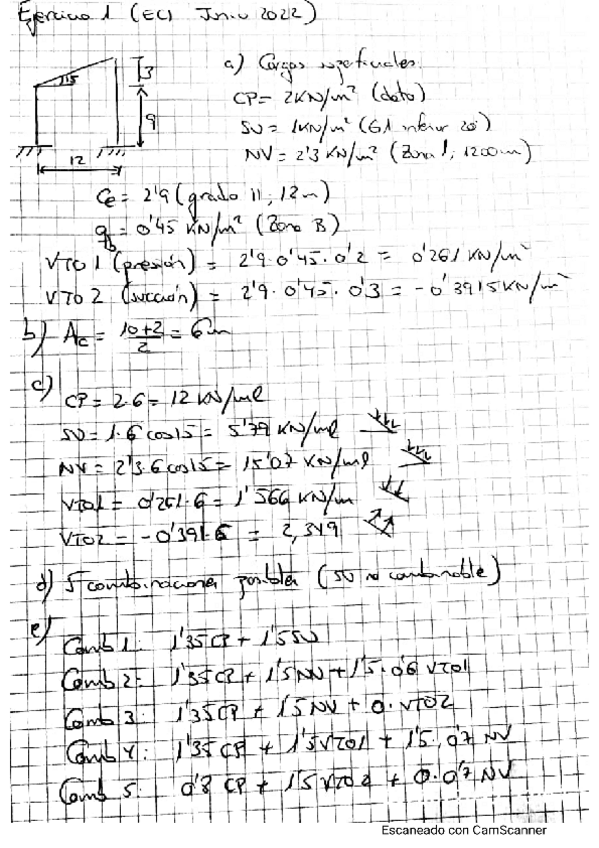 Ejercicio 1 (ECI Junio 2022)
a) Cargas superficiales
CP = 2KN/m² (dato)
SU = 1KN/m² (G1 inferior 20º)
NV = 2'3 KN/m² (Zona 1, 1200m)
15
3
9
12
Ce = 2'9 (grado II, 12m)
qb = 0'45 KN/m² (Zona B)
VTO 1 (presión) = 2'9·0'45·0'2 = 0'261 KN/m²
VTO 2 (succión) = 2'9·0'45·0'3 = -0'3915 KN/m²
b) Ac = 10+2/2 = 6m
c)
CP = 2·6 = 12 KN/ml
SU = 1·6 cos15 = 5'79 KN/ml
NV = 2'3·6 cos15 = 15'07 KN/ml
VTO1 = 0'261·6 = 1'566 KN/m
VTO2 = -0'391·6 = 2,349
d) 5 combinaciones posibles (SU no combinable)
e)
Comb 1: 1'35CP + 1'5SU
Comb 2: 1'35CP + 1'5NV + 1'5·0'6 VTO1
Comb 3: 1'35CP + 1'5NV + 0·VTO2
Comb 4: 1'35CP + 1'5VTO1 + 1'5·0'7 NV
Comb 5: 0'8 CP + 1'5VTO2 + 0·0'7 NV
Escaneado con CamScanner